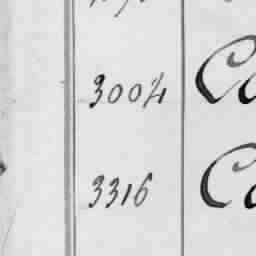 3004 Ca
3316 Ca